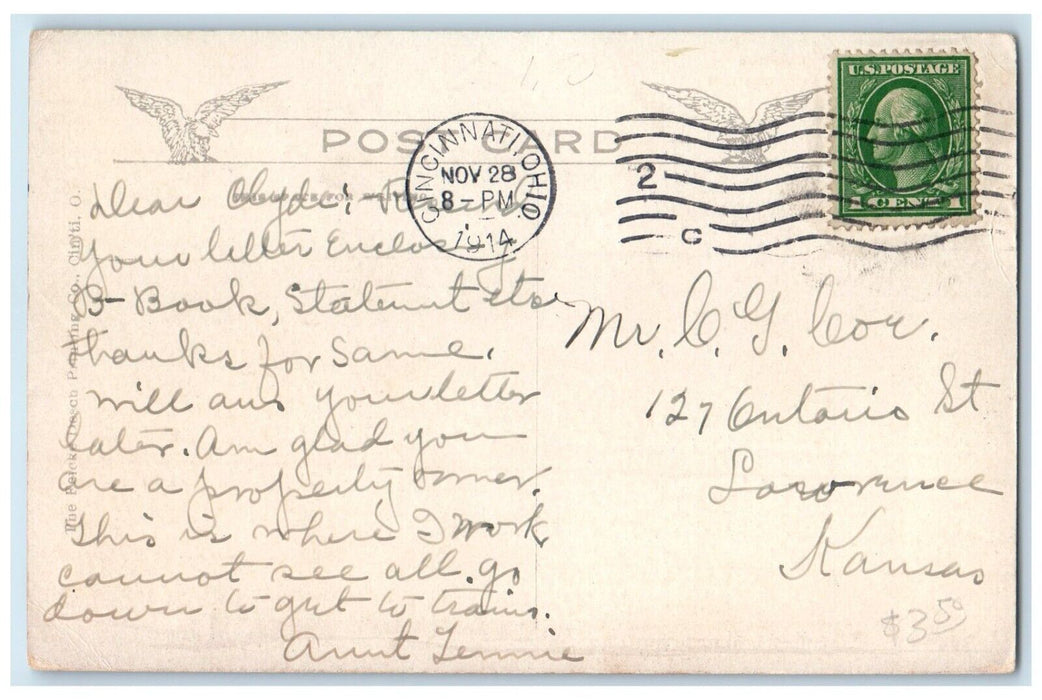 U.S. POSTAGE
1 CENT 1
POST CARD
CINCINNATI, OHIO
NOV 28
8-PM
1914
2
C
Dear Clyde:
Your letter Enclosing
B-Book, Statemnt etc
thanks for same.
will ans your letter
later. Am glad you
are a property owner.
This is where I work
cannot see all. go
down to get to trains.
Aunt Jennie
Mr. C. G. Cox.
127 Ontario St
Lawrence
Kansas
$3.50
Printing Co., Cin'ti, O.